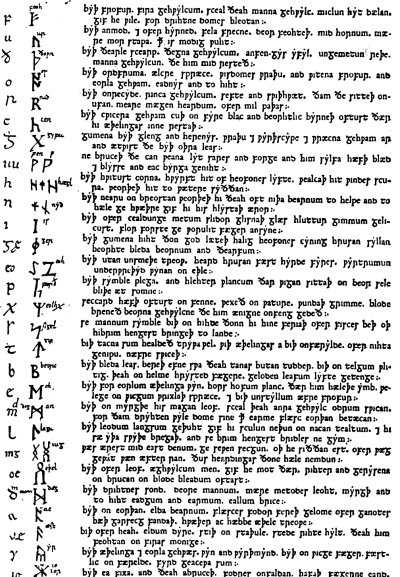 feoh byþ frofur. fira gehƿylcum. sceal ðeah manna gehƿylc. miclun hyt dælan.
gif he ƿile. for drihtne domes hleotan:
ur byþ anmod. ⁊ ofer hyrned. fela frecne. deor feohteþ. mid hornum. mæ-
re mor stapa. þ is modig ƿuht:
byþ ðearle scearp. ðegna gehƿylcum. anfen-gys yfyl. ungemetun reþe.
manna gehƿylcun. ðe him mid resteð:
os byþ ordfruma. ælcre spræce. ƿisdomes ƿraþu. and ƿitena frofur. and
eorla gehƿam. eadnys and to hiht:
rad byþ onrecyde. rinca gehƿylcum. sefte and sƿiþhƿæt. ðam ðe sitteþ on-
ufan. meare mægen heardum. ofer mil paþas:
cen byþ cƿicera gehƿam cuþ on fyre blac and beorhtlic byrneþ oftust ðær
hi æþelingas inne restaþ:
gyfu gumena byþ gleng and herenys. ƿraþu ⁊ ƿyrþscype ⁊ ƿræcna gehƿam ar
and ætƿist ðe byþ oþra leas:
ne bruceþ ðe can ƿeana lyt sares and sorge and him sylfa hæfþ blæd
⁊ blysse and eac byrga geniht:
hægl byþ hƿitust corna. hƿyrft hit of heofones lyfte. ƿealcaþ hit ƿindes scu-
ra. ƿeorþeþ hit to ƿætere syððan:
nyd byþ nearu on breostan ƿeorþeþ hi ðeah oft niþa bearnum to helpe and to
hæle ge hƿæþre gif hi his hlystaþ æror:
is byþ ofer cealdunge metum slidor glisnaþ glæs hluttur gimmum geli-
cust. flor forste ge ƿoruht fæger ansyne:
ger byþ gumena hiht ðon god læteþ halig heofones cyning hrusan syllan
beorhte bleda beornum and ðearfum:
eoh byþ utan unsmeþe treoƿ. heard hrusan fæst hyrde fyres. ƿyrtrumun
underƿreþyd ƿynan on eþle:
byþ symble plega. and hlehter ƿlancum ðar ƿigan sittaþ on beor sele
bliþe æt somne:
seccard hæfþ oftust on fenne. ƿexeð on ƿature. ƿundaþ grimme. blode
breneð beorna gehƿylcne ðe him ænigne onfeng gedeð:
sigel se mannum symble biþ on hihte ðonn hi hine feriaþ ofer fisces beþ oþ
hibrim hengest bringeþ to lande:
tir biþ tacna sum healdeð tryƿa ƿel. ƿiþ æþelingas a biþ onfærylde. ofer nihta
genipu. næfre sƿiceþ:
beorc byþ bleda leas. bereþ efne sƿa ðeah tanas butan tudder. biþ on telgum ƿli-
tig. þeah on helme hrysted fægere. geloden leafum lyfte getenge:
eh byþ for eorlum æþelinga ƿyn. hors hofum ƿlanc. ðær him hæleþe ymb. ƿe-
lege on ƿicgum ƿrixlaþ spræce. ⁊ biþ unstyllum æfre frofur:
man byþ on myrgþe his magan leof. sceal þeah anra gehƿylc oðrum sƿican.
for ðam dryhten ƿyle dome sine þ earme flæsc eorþan betæcan:
lagu byþ leodum langsum geþuht gif hi sculun neþun on nacan tealtum. ⁊ hi
sæ yþa sƿyþe bregaþ. and se brim hengest bridles ne gym:
ing ƿæs ærest mid east denum. ge seƿen secgun. oþ he siððan est. ofer ƿæg
geƿat ƿæn æfter ran. ðus heardingas ðone hæle nemdun:
eþel byþ ofer leof. æghƿylcum men. gif he mot ðær. rihter and gerysena
on brucan on blode bleadum oftast:
dæg byþ drihtnes sond. deore mannum. mære metodes leoht. myrgþ and
to hiht eadgum and earmum. eallum brice:
ac byþ on eorþan. elda bearnum. flæsces fodor fereþ gelome ofer ganotes
bæþ garsecg fandaþ. hƿæþer ac hæbbe æþele treoƿe:
æsc biþ ofer heah. eldum dyre. stiþ on staþule. stede rihte hylt. ðeah him
feohtan on firas monige:
yr byþ æþelinga ⁊ eorla gehƿæs. ƿyn and ƿyrþmynd. byþ on ƿicge fæger. fæst-
lic on færelde. fyrd geacepa sum: